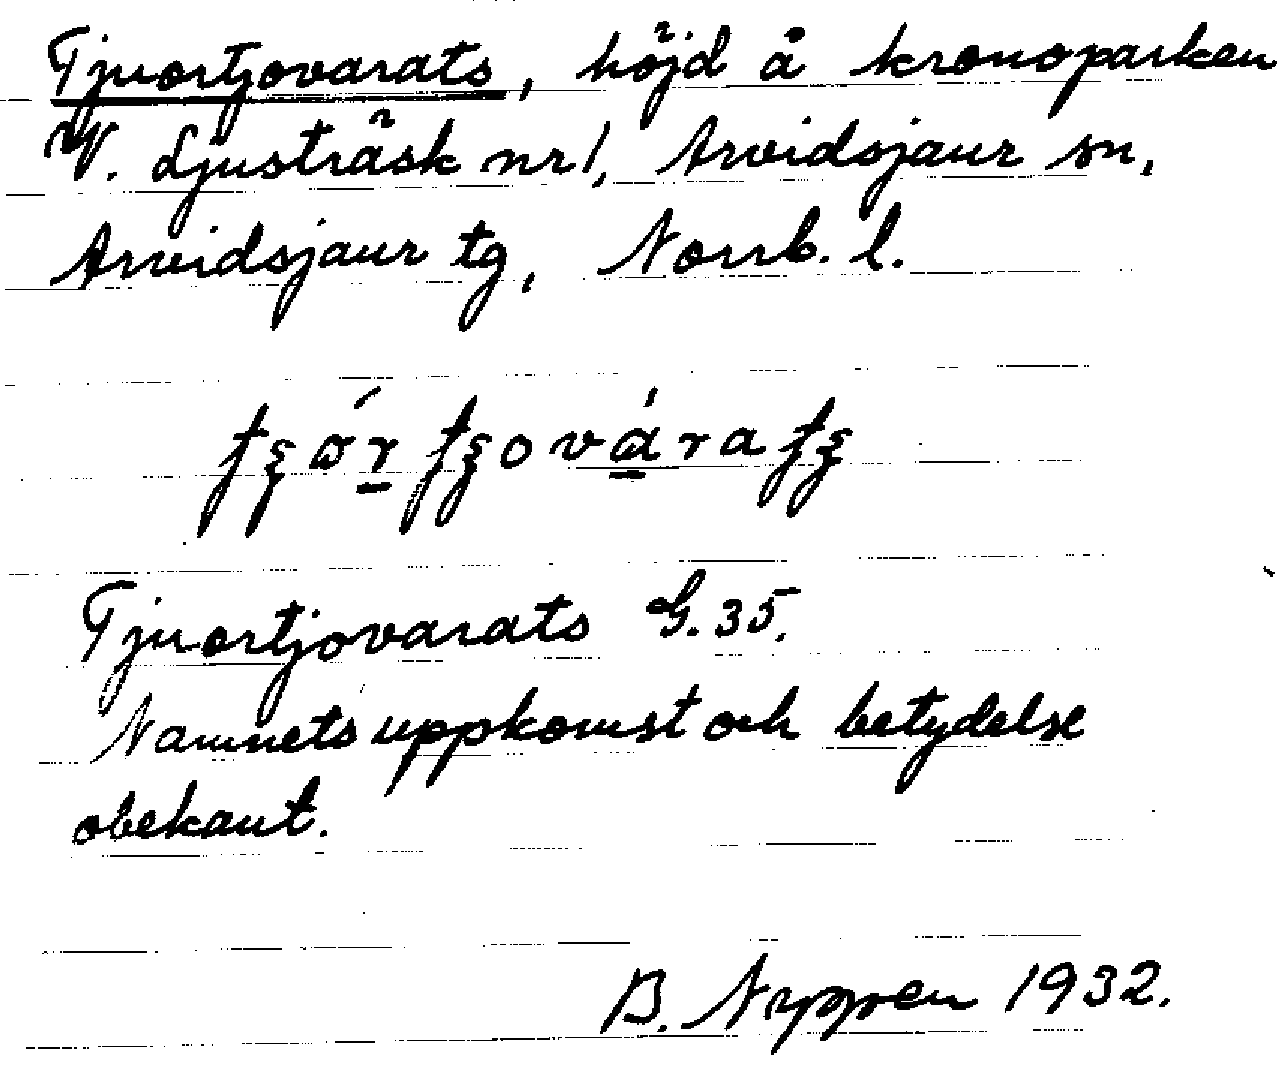 Tjuortjovarats, höjd å kronoparken
V. Ljusträsk nr 1, Arvidsjaur sn,
Arvidsjaur tg, Norrb. l.
Tjuortjovarats G. 35.
Namnets uppkomst och betydelse
obekant.
B. Nyppen 1932.